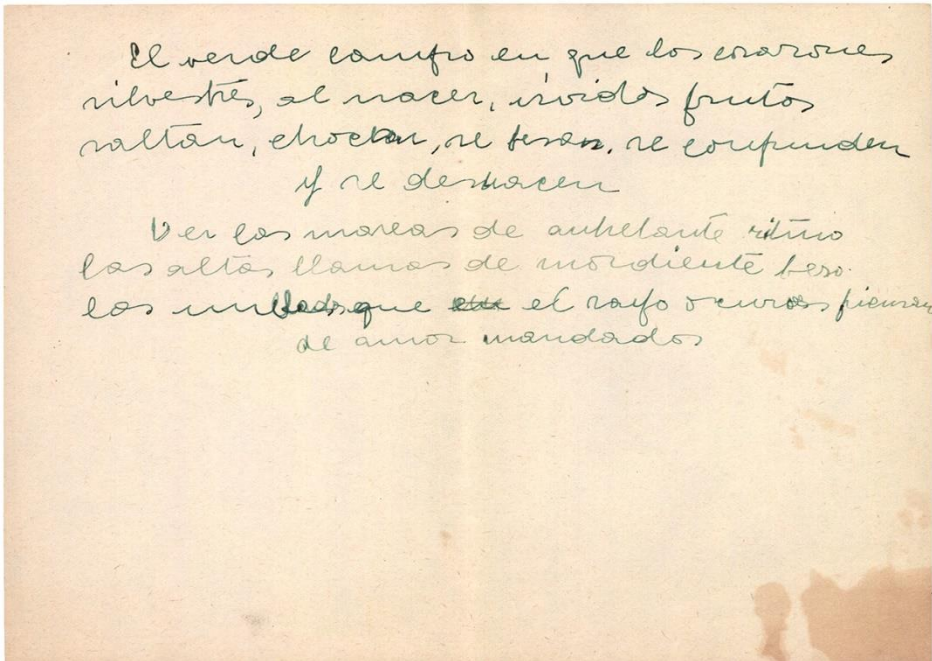 El verde campo en que los corazones
silvestres, al nacer, ávidos frutos
saltan, chocan, se besan, se confunden
y se deshacen
Ver las mareas de anhelante ritmo
las altas llamas de mordiente beso.
las que el rayo oscuras piensan
de amor mandados